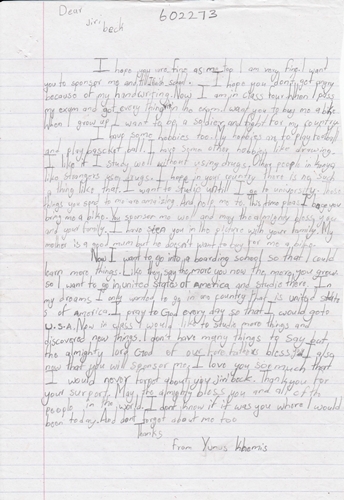 Dear
Siri beck
602273
I hope you are fine as me too I am very fine. I want
you to sponser me and to school. I hope you don't get angry
because of my handwriting. Now I am in class four when I pass
my exam and got every thing in the exam I want you to buy me a bike
when I grow up I want to be a soldier and fight for my country
I have some hobbies too. My hobbies are to play football
and play bascket ball. I have some other hobbies like drawing.
I like it I study well without using drugs. Other people in kenya
like strangers use drugs. I hope in your country there is no such
a thing like that. I want to studie until I go to university. Those
things you send to me are amaizing and help me to this time please I beg you
bring me a bike. You sponser me well and may the almighty bless you
and your family. I have seen you in the picture with your family. My
mother is a good mum but he doesn't want to buy for me a bike.
Now I want to go into a boarding school so that I could
learn more things. Like they say the more you now the more you grow
so I want to go in united states of America and studie there. In
my dreams I only wanted to go in one country that is united state
s of America. I pray to God every day so that I would go to
U.S.A. Now in class 4 I would like to studie more things and
discovered new things. I don't have many things to say but
the almighty lord God of our fore fathers bless you. I also
now that you will sponser me. I love you so much that
I would never forget about you Siri back. Thank you for
your surport. May the almighty bless you and all of the
people in the world. I don't know if it was you where I would
been today. And don't forget about me too
Thanks
From Yunus khamis